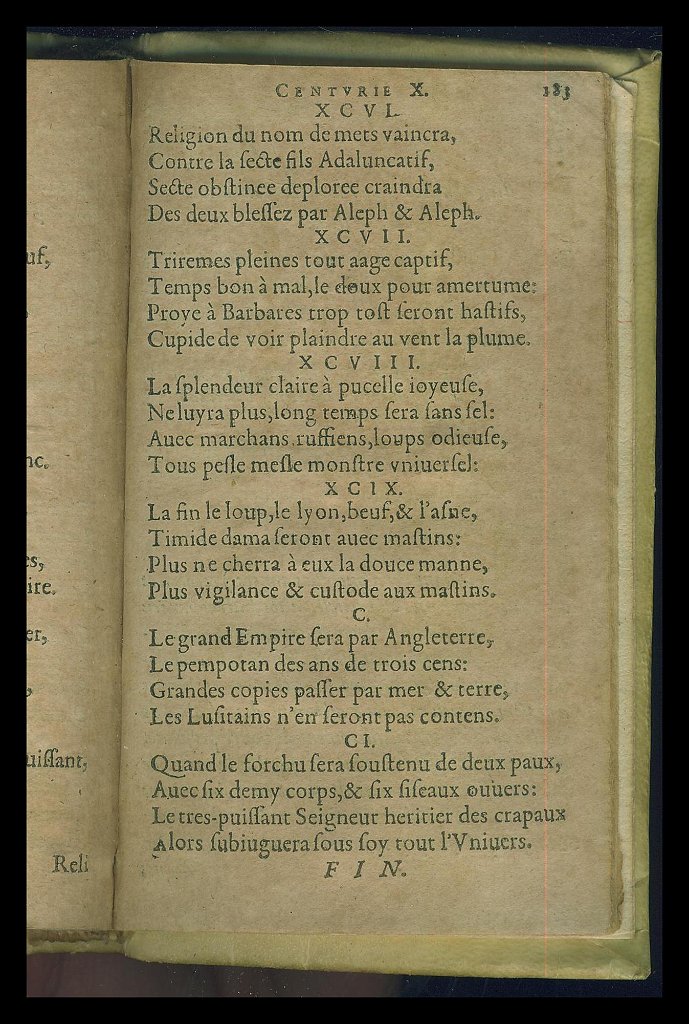 uf,
,
nc.
es,
ire.
er,
,
uiſſant,
Reli
CENTVRIE X. 183
XCVI.
Religion du nom de mets vaincra,
Contre la ſecte fils Adaluncatif,
Secte obſtinee deploree craindra
Des deux bleſſez par Aleph & Aleph.
XCVII.
Triremes pleines tout aage captif,
Temps bon à mal,le doux pour amertume:
Proye à Barbares trop toſt ſeront haſtifs,
Cupide de voir plaindre au vent la plume.
XCVIII.
La ſplendeur claire à pucelle ioyeuſe,
Ne luyra plus,long temps ſera ſans ſel:
Auec marchans,ruffiens,loups odieuſe,
Tous peſle meſle monſtre vniuerſel:
XCIX.
La fin le loup,le lyon,beuf,& l'aſne,
Timide dama ſeront auec maſtins:
Plus ne cherra à eux la douce manne,
Plus vigilance & cuſtode aux maſtins.
C.
Le grand Empire ſera par Angleterre,
Le pempotan des ans de trois cens:
Grandes copies paſſer par mer & terre,
Les Luſitains n'en ſeront pas contens.
CI.
Quand le forchu ſera ſouſtenu de deux paux,
Auec ſix demy corps,& ſix ſiſeaux ouuers:
Le tres-puiſſant Seigneur heritier des crapaux
Alors ſubiuguera ſous ſoy tout l'Vniuers.
FIN.